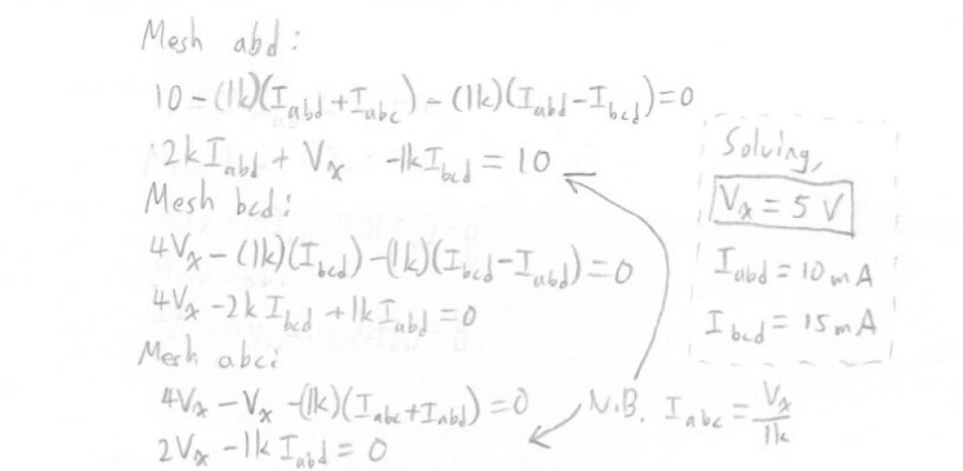 Mesh abd:
10 - (1k)(I_abd + I_abc) - (1k)(I_abd - I_bcd) = 0
2k I_abd + V_x - 1k I_bcd = 10
Mesh bcd:
4V_x - (1k)(I_bcd) - (1k)(I_bcd - I_abd) = 0
4V_x - 2k I_bcd + 1k I_abd = 0
Mesh abc:
4V_x - V_x - (1k)(I_abc + I_abd) = 0
2V_x - 1k I_abd = 0
N.B. I_abc = V_x / 1k
Solving,
V_x = 5 V
I_abd = 10 mA
I_bcd = 15 mA